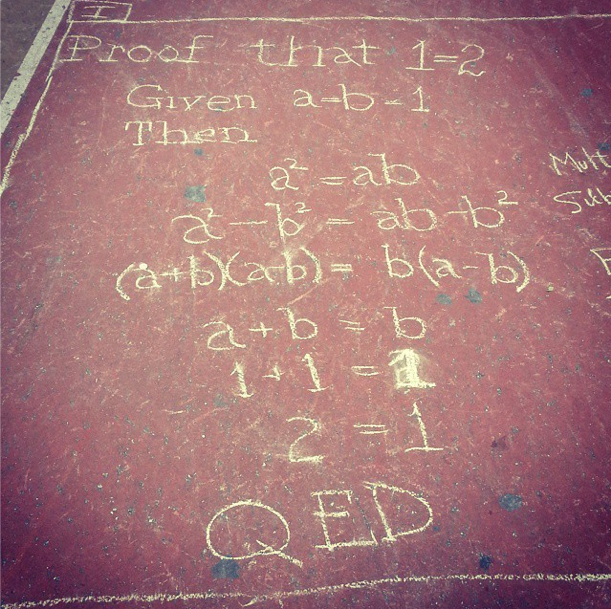 I
Proof that 1=2
Given a=b=1
Then
a² = ab
a² - b² = ab - b²
(a+b)(a-b) = b(a-b)
a + b = b
1 + 1 = 1
2 = 1
QED